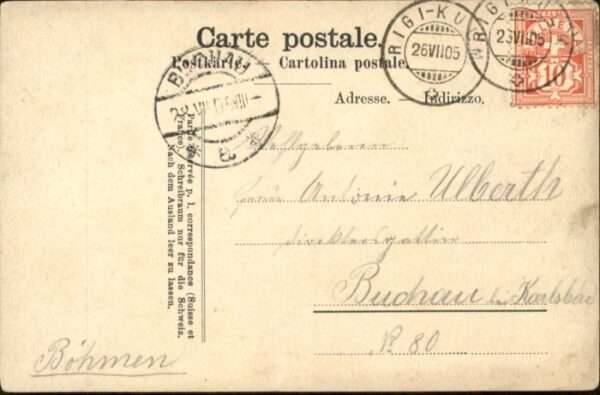 Carte postale.
Postkarte. — Cartolina postale.
Adresse. — Indirizzo.
RIGI-KU
26 VII 05
RIGI-KU
26 VII 05
10
BUCHAU
Partie réservée p. l. correspondance (Suisse et
France). Schreibraum nur für die Schweiz.
Nach dem Ausland leer zu lassen.
Antonie Ulberth
Buchau bei Karlsbad
N 80
Böhmen